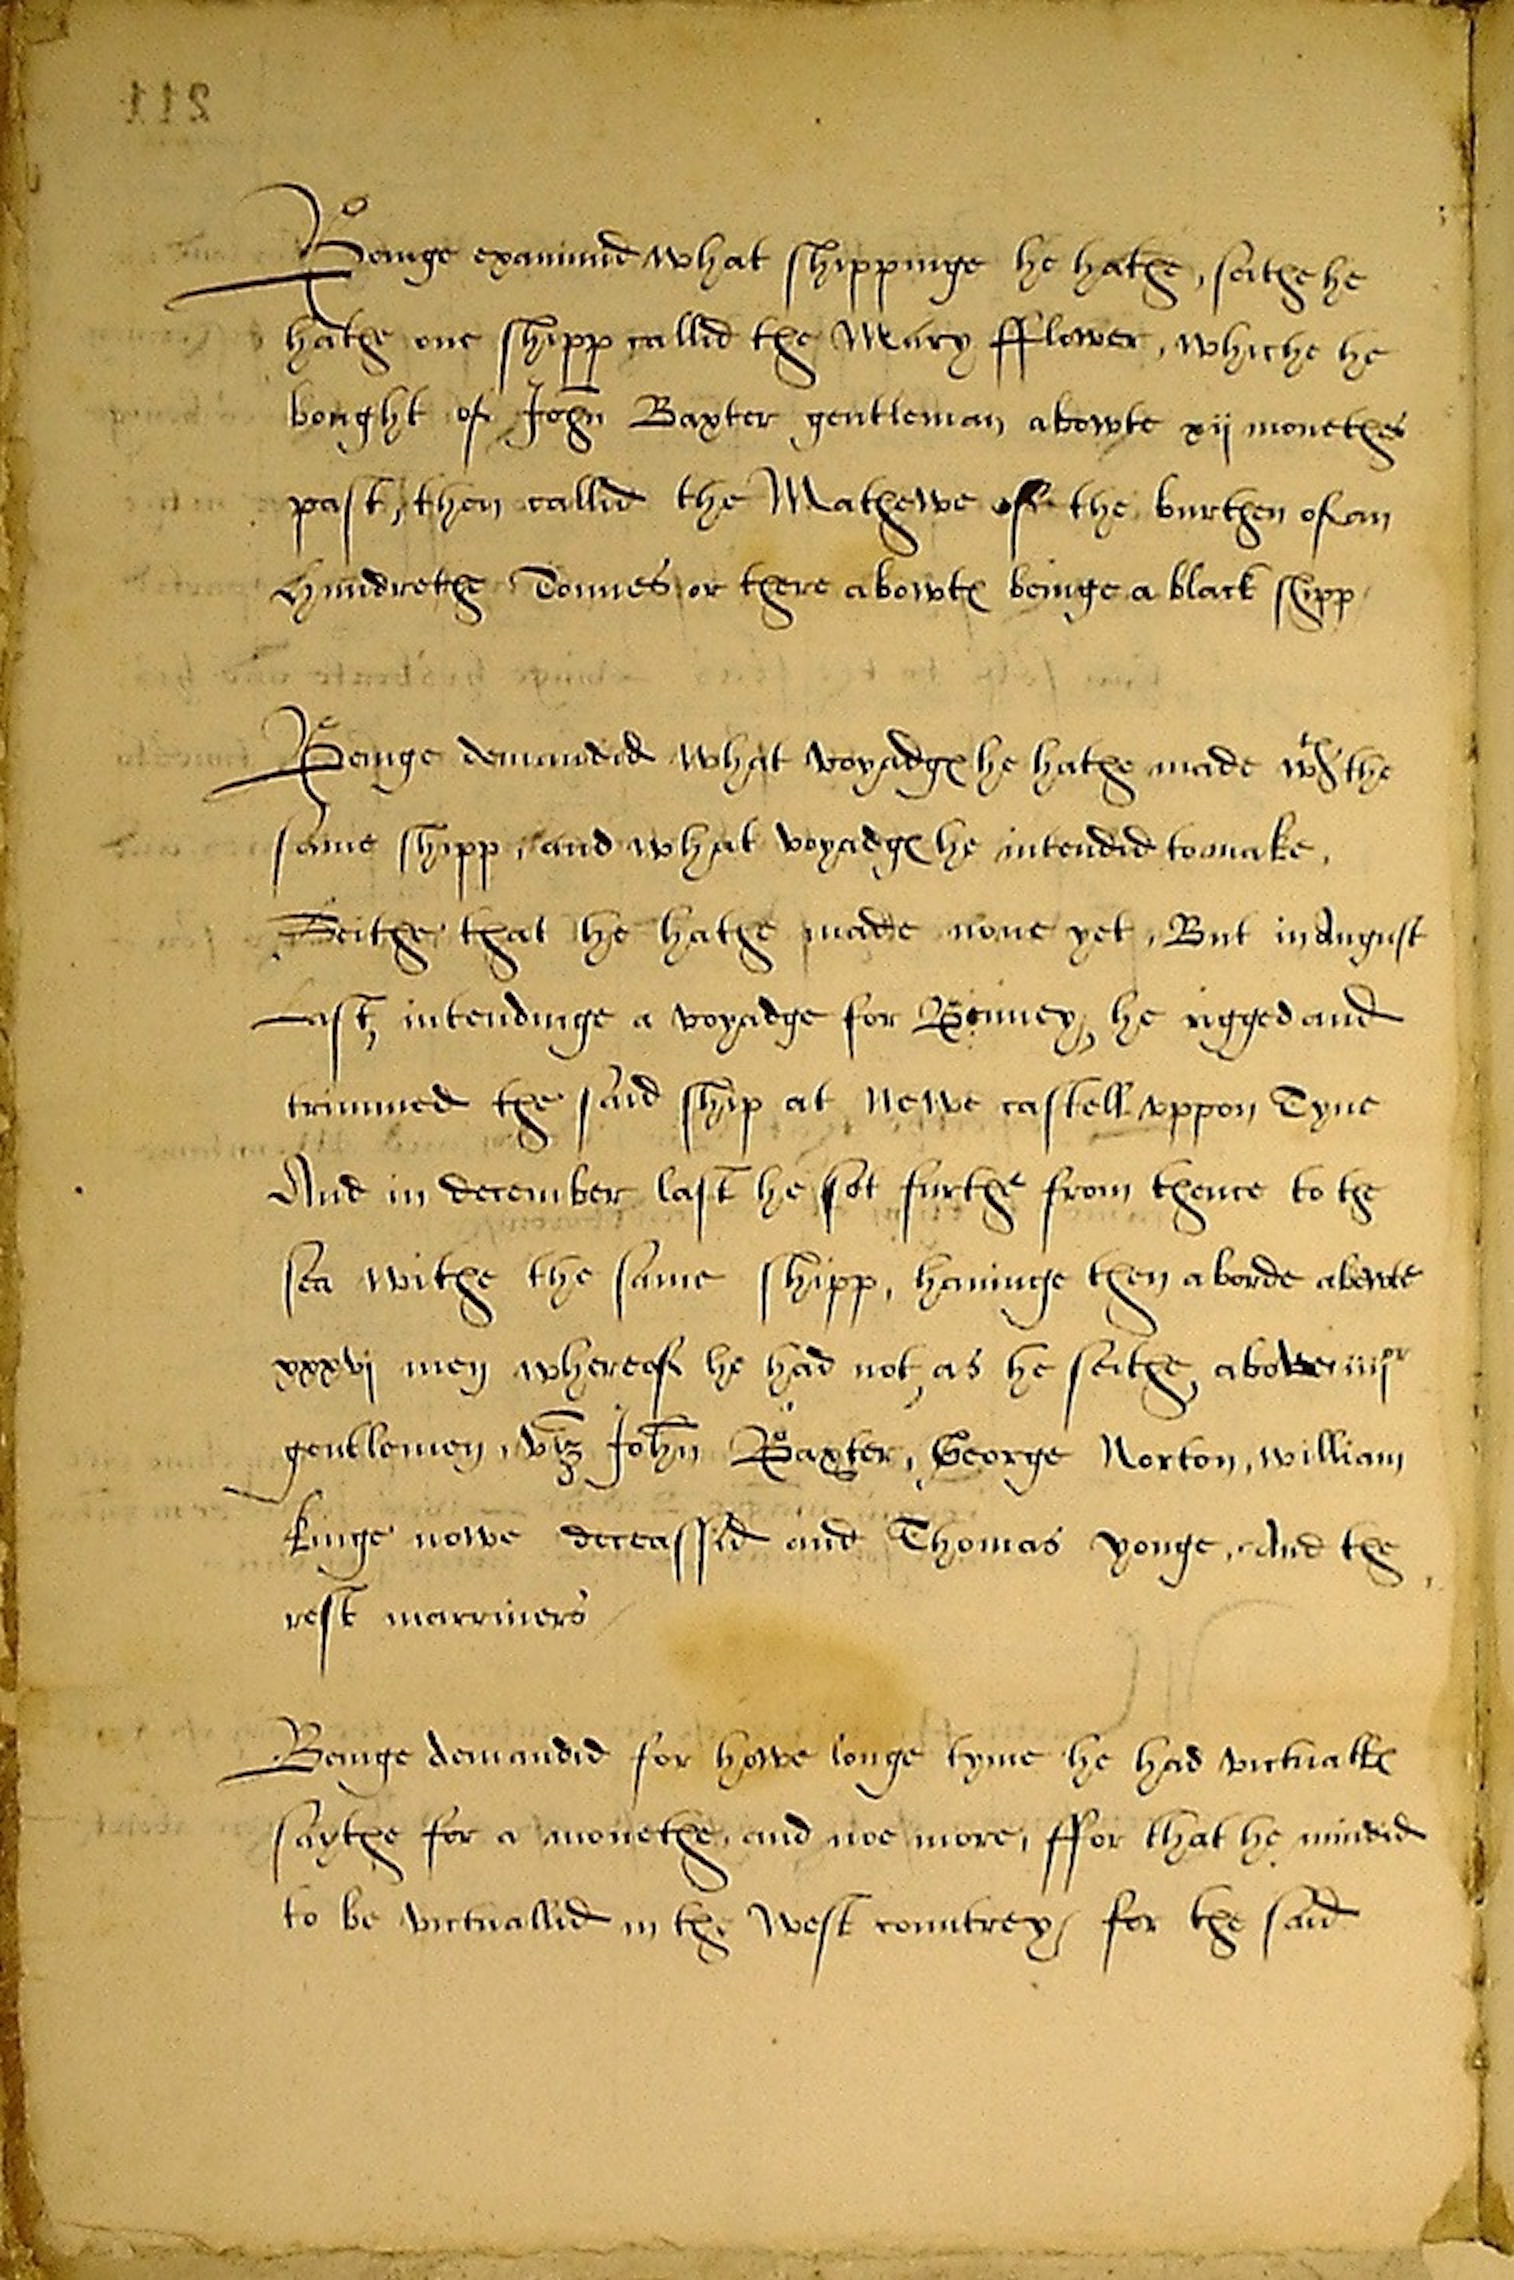 Beinge examinid what shippinge he hathe, seithe he
hathe one shipp callid the Mary fflower, whiche he
bought of John Baxter gentleman abowte xij monethes
past, then callid the Mathewe of the burthen of an
hundrethe Tonnes or there abowtes beinge a black shipp
Beinge demaundid what voyadges he hathe made wth the
same shipp, and what voyadges he intendid to make,
Seithe that he hathe made none yet, But in August
Last, intendinge a voyadge for Ginney, he rigged and
trimmed the said ship at Newe castell vppon Tyne
And in december last he set furthe from thence to the
sea withe the same shipp, havinge then aborde abowte
xxxvj men whereof he had not, as he seithe, above iiijor
gentlemen, viz John Baxter, George Norton, william
kinge nowe deceassid and Thomas yonge, And the
rest marriners
Beinge demandid for howe longe tyme he had victualles
saythe for a monethe, and noe more, ffor that he mindid
to be victuallid in the west countrey, for the said
211